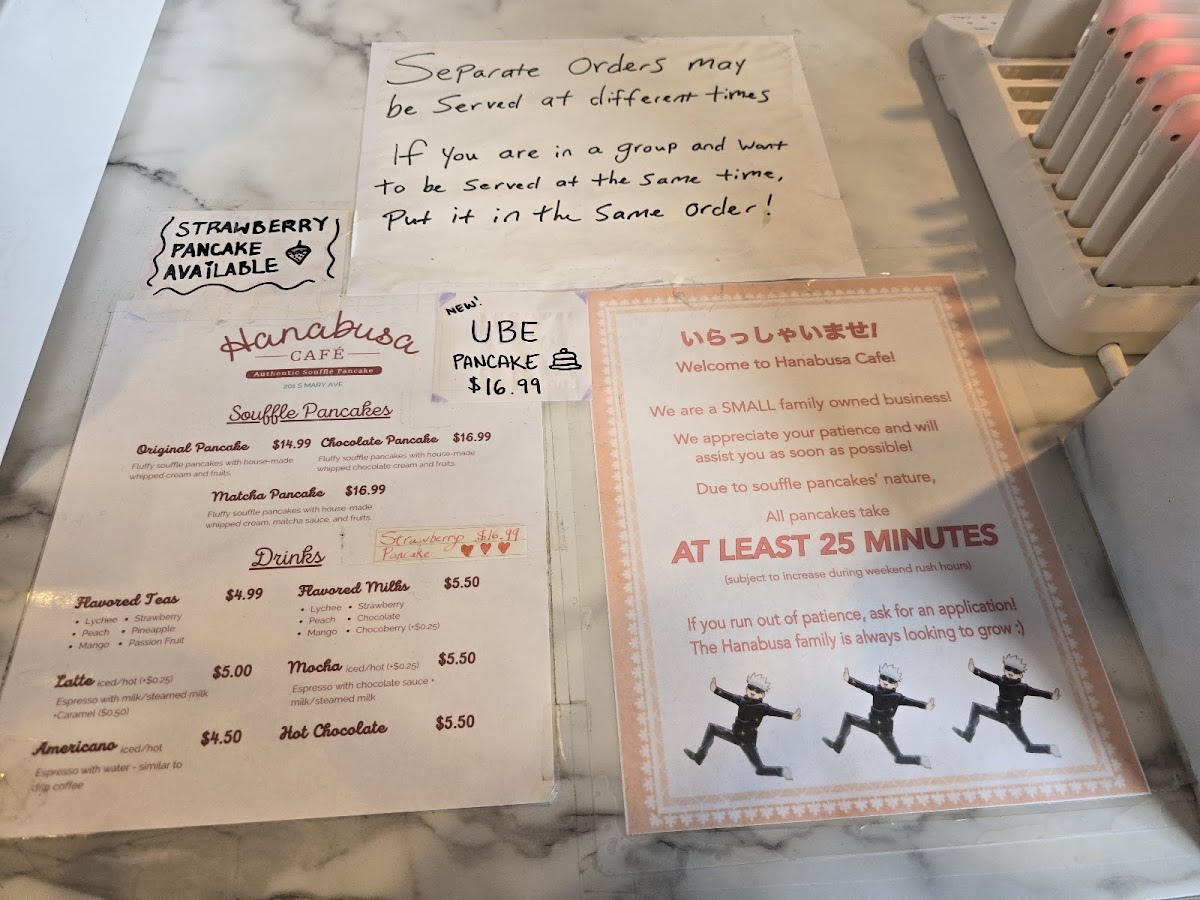 Separate Orders may
be Served at different times
If you are in a group and want
to be served at the same time,
Put it in the same order!
STRAWBERRY
PANCAKE
AVAILABLE
NEW!
UBE
PANCAKE
$16.99
Hanabusa
CAFÉ
Authentic Soufflé Pancake
201 S MARY AVE
Souffle Pancakes
Original Pancake $14.99
Fluffy souffle pancakes with house-made
whipped cream and fruits.
Chocolate Pancake $16.99
Fluffy souffle pancakes with house-made
whipped chocolate cream and fruits.
Matcha Pancake $16.99
Fluffy souffle pancakes with house-made
whipped cream, matcha sauce, and fruits.
Strawberry $16.99
Pancake
Drinks
Flavored Teas $4.99
• Lychee • Strawberry
• Peach • Pineapple
• Mango • Passion Fruit
Flavored Milks $5.50
• Lychee • Strawberry
• Peach • Chocolate
• Mango • Chocoberry (+$0.25)
Latte Iced/hot (+$0.25) $5.00
Espresso with milk/steamed milk
+Caramel ($0.50)
Mocha Iced/hot (+$0.25) $5.50
Espresso with chocolate sauce +
milk/steamed milk
Americano Iced/hot $4.50
Espresso with water - similar to
drip coffee
Hot Chocolate $5.50
いらっしゃいませ!
Welcome to Hanabusa Cafe!
We are a SMALL family owned business!
We appreciate your patience and will
assist you as soon as possible!
Due to souffle pancakes' nature,
All pancakes take
AT LEAST 25 MINUTES
(subject to increase during weekend rush hours)
If you run out of patience, ask for an application!
The Hanabusa family is always looking to grow :)